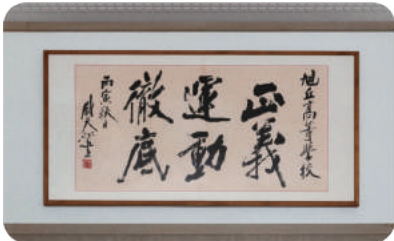 旭丘高等学校
正義
運動
徹底
丙寅秋日